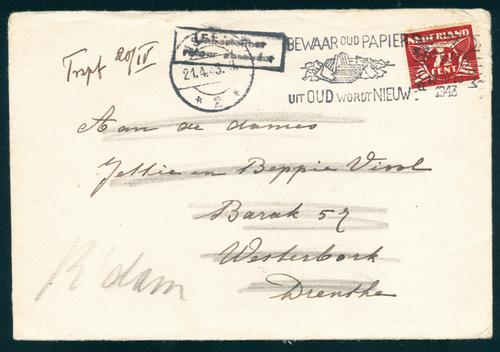 Trspt 20/IV
retour afzender
21.4.43.
2
BEWAAR OUD PAPIER
UIT OUD WORDT NIEUW
1943
NEDERLAND
7½
CENT
Aan de dames
Jettie en Beppie Viool
Barak 57
Westerbork
Drenthe
R'dam